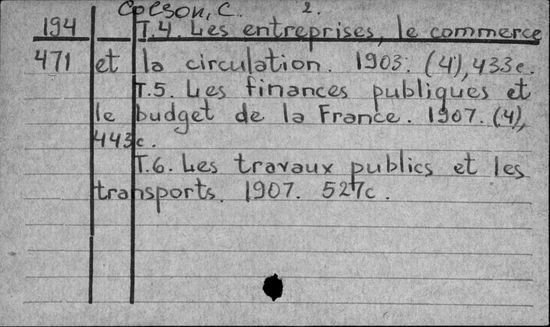 Colson, C. 2.
194 T.4. Les entreprises, le commerce
471 et la circulation. 1903. (4), 433c.
T.5. Les finances publiques et
le budget de la France. 1907. (4),
443c.
T.6. Les travaux publics et les
transports. 1907. 527c.